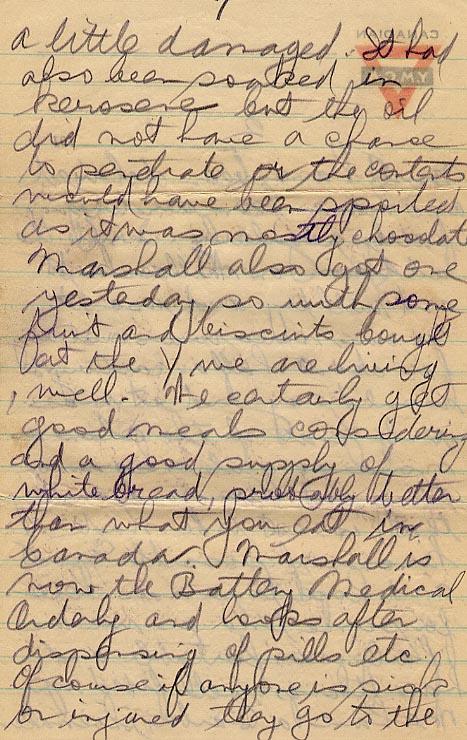 a little damaged. It had
also been soaked in
kerosene but the oil
did not have a chance
to penetrate or the contents
would have been spoiled
as it was mostly chocolate
Marshall also got one
yesterday so with some
fruit and biscuits bought
at the Y, we are living
well. We certainly get
good meals considering
and a good supply of
white bread, probably better
than what you eat in
Canada. Marshall is
now the Battery Medical
Orderly and looks after
dispensing of pills etc
Of course if anyone is sick
or injured they go to the
CANADIAN
Y.M.